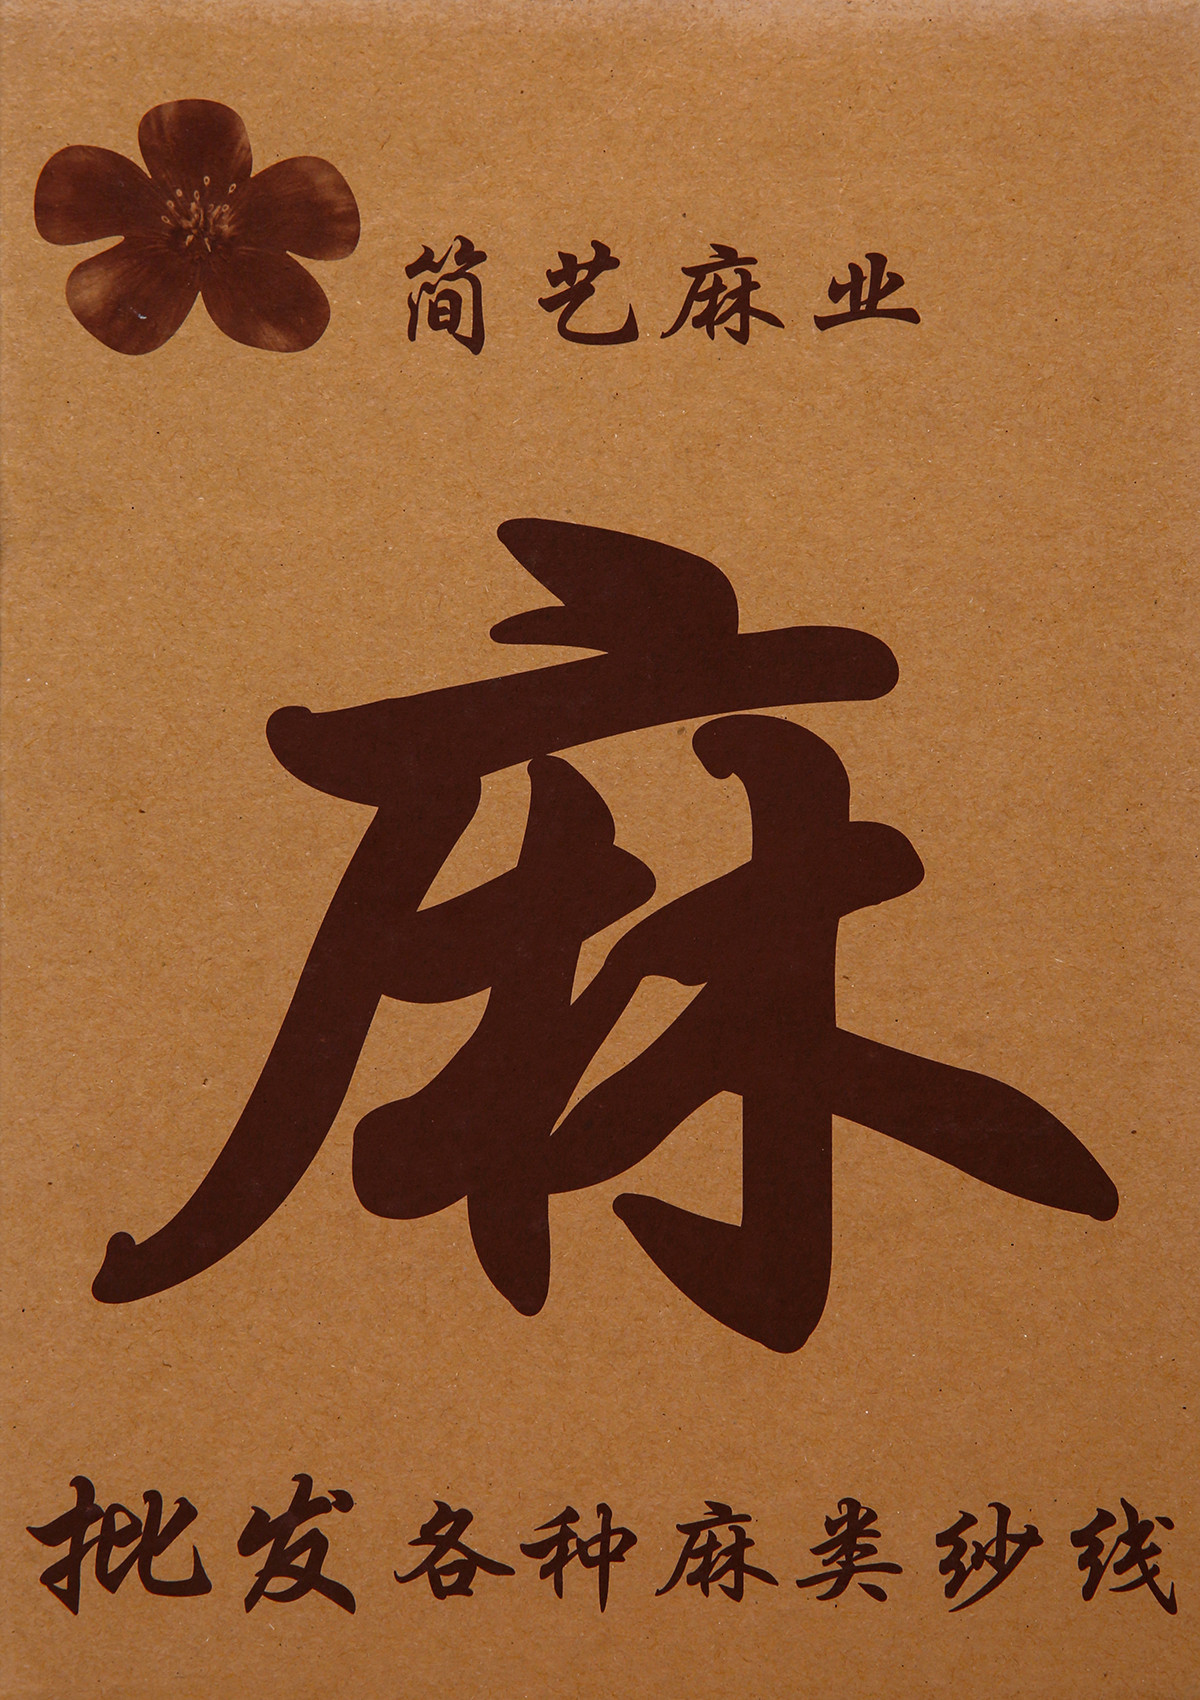 简艺麻业
麻
批发各种麻类纱线